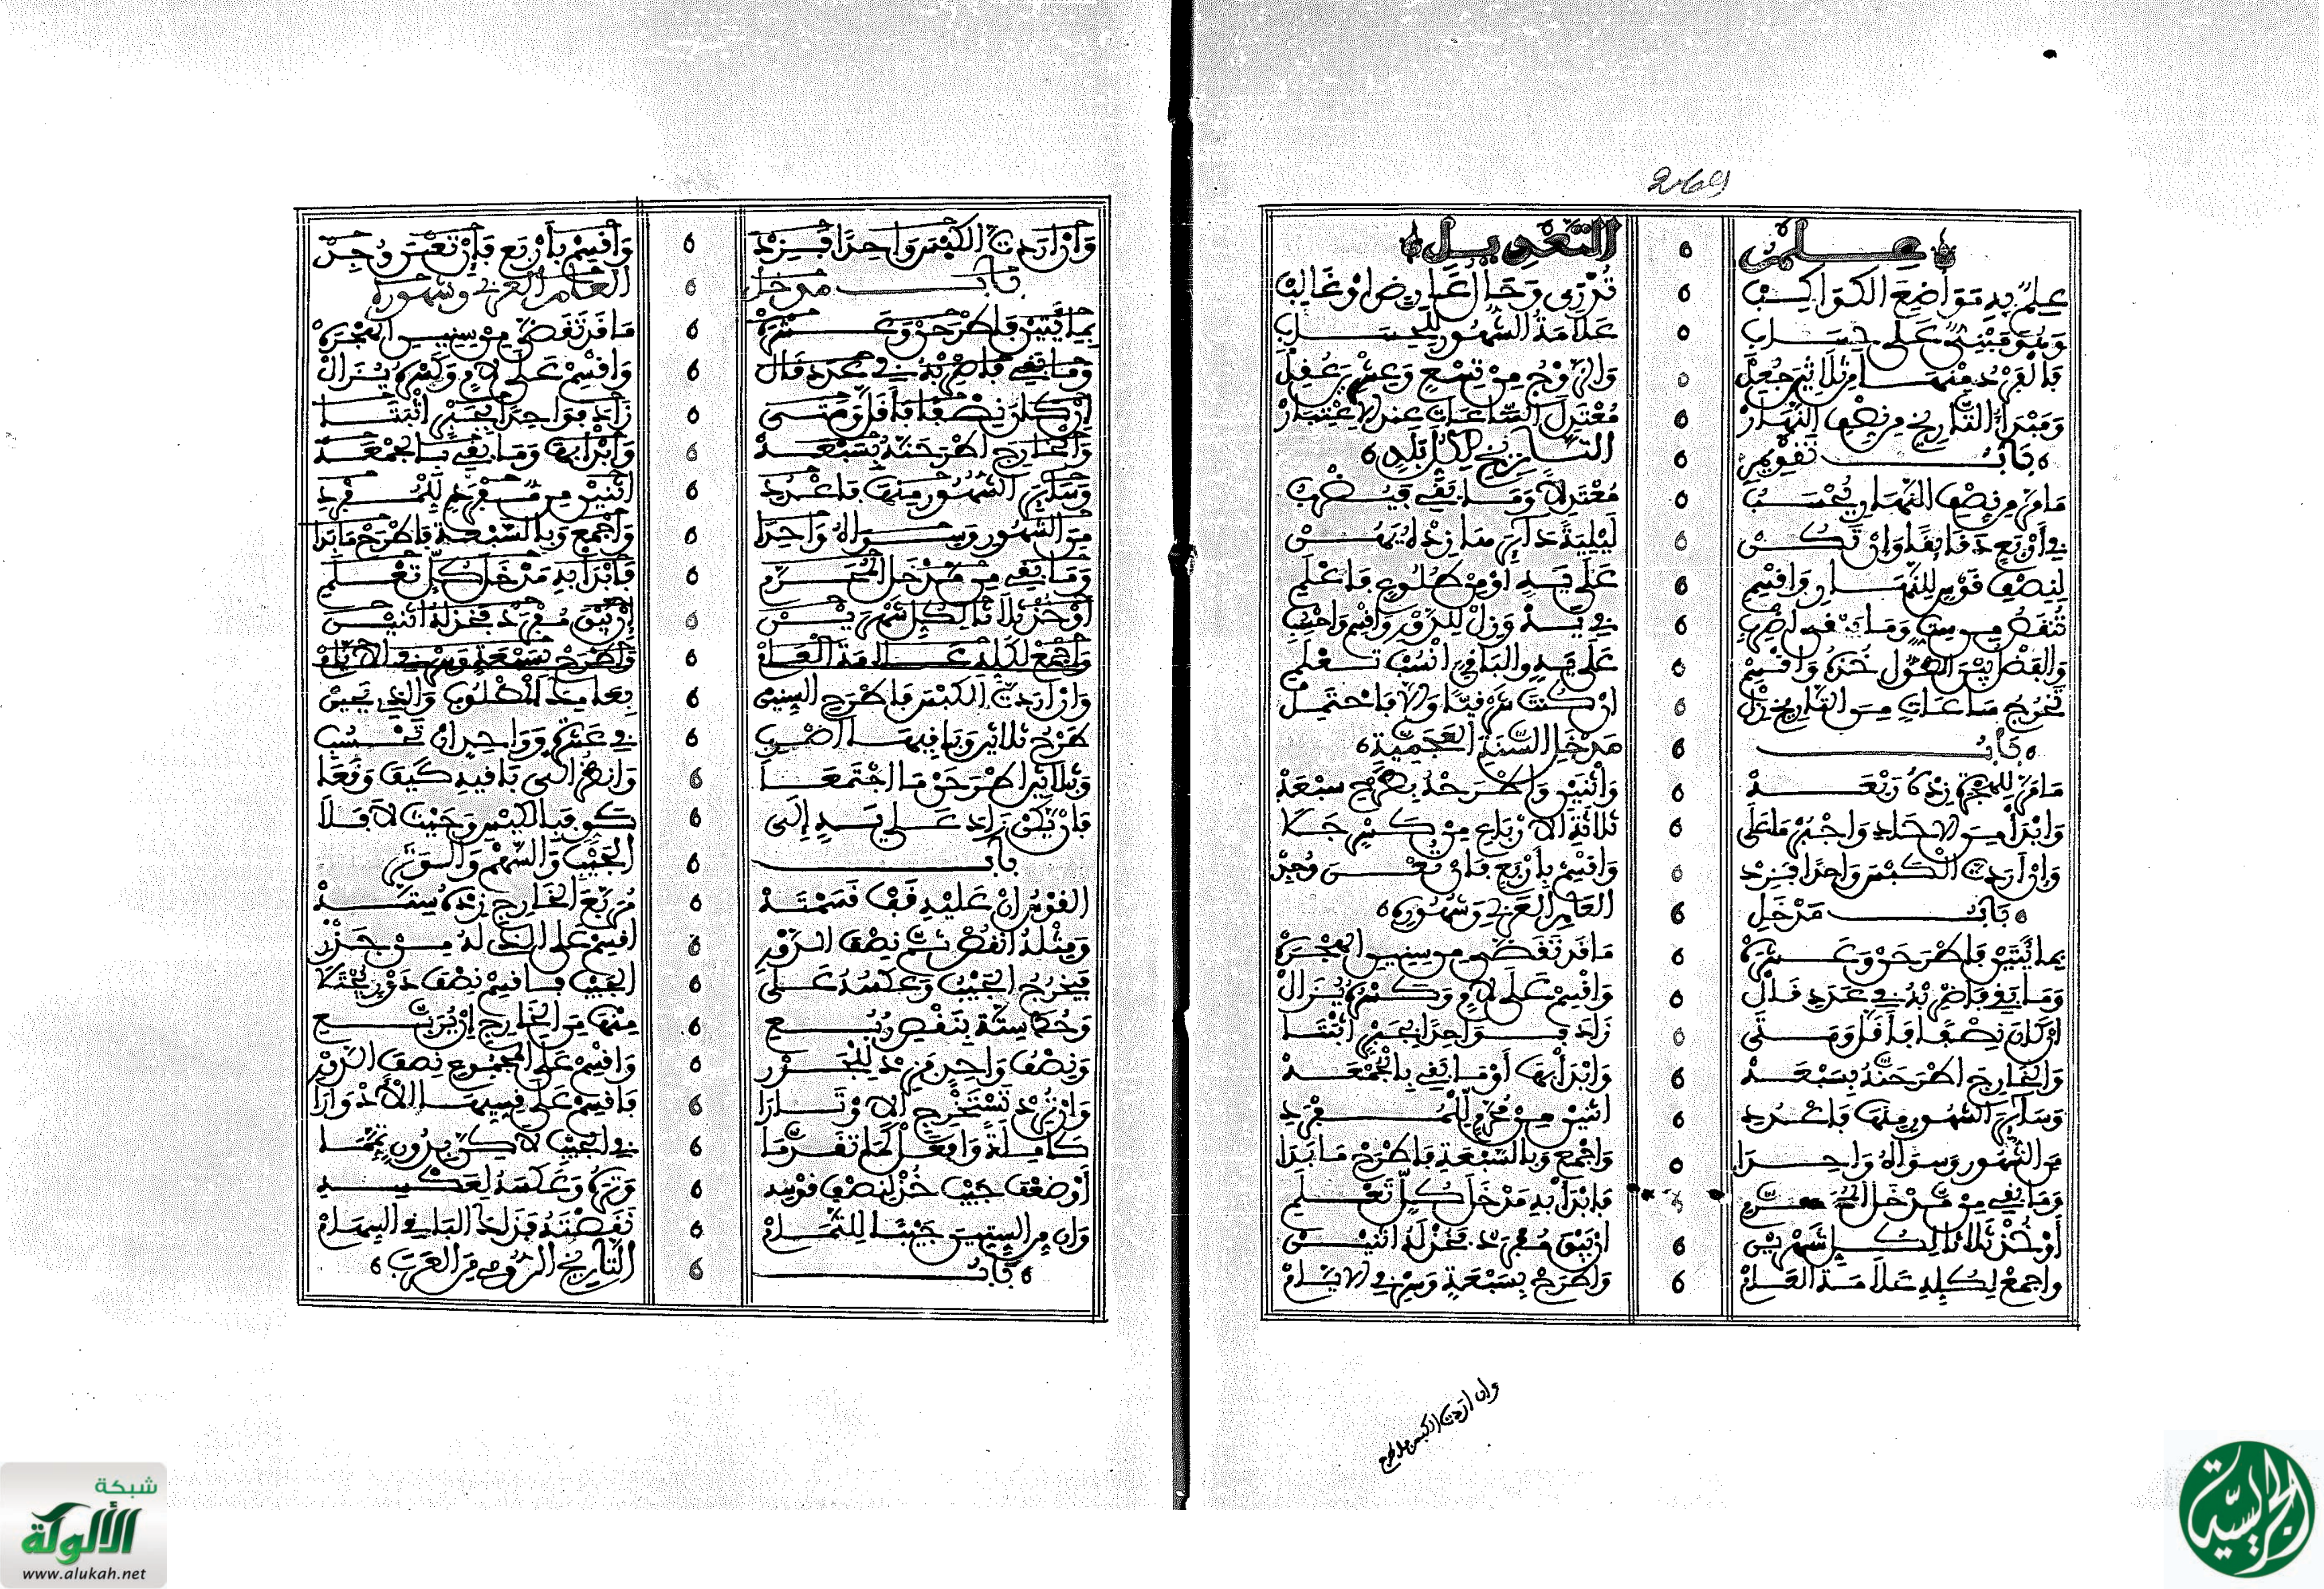 علم التعديل
علم به مواضع الكواكب تدرى وحال عارض أو غالب
وهو مبني على حساب علامة الشهور للحساب
فالفرد منها من ثلاثين جعل والزوج من تسع وعشرين عقل
ومبدأ التاريخ من نصف النهار معتدل الساعات عند الاعتبار
باب تقويم التاريخ لكل بلد
ما مر من نصف النهار يحسب معتدلا وما بقي فيضرب
في أربع دقائقا وإن تكن
لنصف قوس للنهار واقسم على يه أو من طلوع فاعلم
والفضل بين الطول خذه واقسم على يه والباقي انسب تعلم
تخرج ساعات من التاريخ زل إن كنت شرقيا وإلا فاحتمل
باب مدخل السنة العجمية
ما مر للهجرة زده أربعه واثنين واطرحه بطرح سبعه
وابدأ من الاحاد واجبر ما على ثلاثة الارباع من كسر جلا
وإن أردت الكبس واحدا فزد واقسم بأربع فإن تعس وجد
باب مدخل العام العربي وشهوره
بمائتين فاطرحن وعشره ما قد تقضى من سنين الهجره
وما بقي فاضربه في عدد قال واقسم على لام وكسره يزال
إن كان نصفا فأقل ومتى زاد فواحدا بجبر اثبتا
والخارج اطرحنه بسبعه وابدأ بها أو ما بقي بالجمعه
وسائر الشهور منها فاعدد اثنين من مفرد للمفرد
من الشهور وسواه واحدا واجمع وبالسبعة فاطرح ما بدا
وما بقي من مدخل المحرم فابدأ به مدخل كل تعلم
أو خذ ثلاثا لكل شهرين إن يبق مفرد فخذ له اثنين
واجمع لكله علامة العام واطرح بسبعة وسر في الايام
وان اردت الكبس فاطرح
وإن أردت الكبس واحدا فزد واقسم بأربع فإن تعس وجد
باب مدخل العام العربي وشهوره
بمائتين فاطرحن وعشره ما قد تقضى من سنين الهجره
وما بقي فاضربه في عدد قال واقسم على لام وكسره يزال
إن كان نصفا فأقل ومتى زاد فواحدا بجبر اثبتا
والخارج اطرحنه بسبعه وابدأ بها وما بقي بالجمعه
وسائر الشهور منها فاعدد اثنين من مفرد للمفرد
من الشهور وسواه واحدا واجمع وبالسبعة فاطرح ما بدا
وما بقي من مدخل المحرم فابدأ به مدخل كل تعلم
أو خذ ثلاثا لكل شهرين إن يبق مفرد فخذ له اثنين
واجمع لكله علامة العام واطرح بسبعة وسر في الايام
وإن أردت الكبس فاطرح السنين بعامك المطلوب والذي يبين
طرح ثلاثين وباقيها اضرب في عشرة وواحد إن تحسب
وثلاثين اطرحن ما اجتمعا وانظر إلى باقيه كيف وقعا
فإن يكن زاد على يه إلى كو فبالكبس وحيث لا فلا
باب الجيب والسهم والوتر
القوس إن عليه قب قسمته مربع الخارج زده سته
ومثله انقص ثم نصف الزوير اقسم على الذي له من جذر
فيخرج الجيب وعكسه على الجيب فاقسم نصف دور يجتلا
وحط ستة بنقص ربع منها من الخارج إن يربع
ونصف واحد فزد للجذر واقسم على المجموع نصف الزوير
وإن ترد تستخرج الاوتارا فاقسم على قسيها الأدوارا
كاملة وافعل كما تقدما في الجيب لاكن بدون تمما
أو ضعف جيب خذ لنصف قوسه وتره وعكسه لعكسه
وإن من الستين جيبا للتمام نقصته فزاد الباقي السهام
باب التاريخ الرومي من العرب
شبكة
الألوكة
www.alukah.net